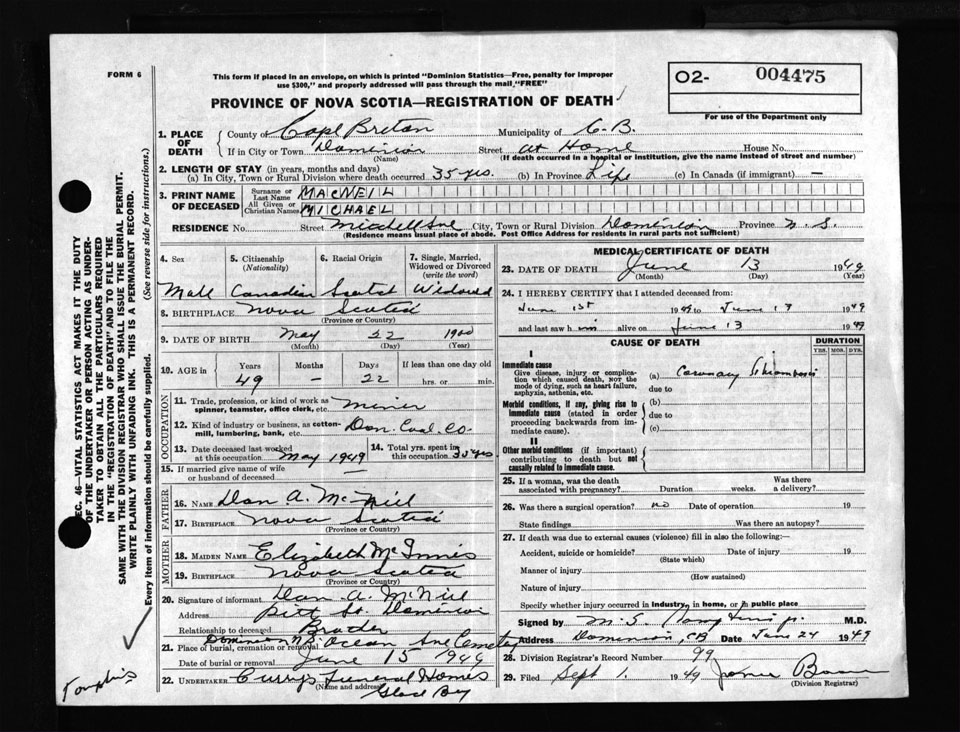 FORM 6
This form if placed in an envelope, on which is printed "Dominion Statistics—Free, penalty for improper
use $300," and properly addressed will pass through the mail, "FREE"
PROVINCE OF NOVA SCOTIA—REGISTRATION OF DEATH
O2- 004475
For use of the Department only
SEC. 46—VITAL STATISTICS ACT MAKES IT THE DUTY
OF THE UNDERTAKER OR PERSON ACTING AS UNDER-
TAKER TO OBTAIN ALL THE PARTICULARS REQUIRED
IN THE "REGISTRATION OF DEATH" AND TO FILE THE
SAME WITH THE DIVISION REGISTRAR WHO SHALL ISSUE THE BURIAL PERMIT.
WRITE PLAINLY WITH UNFADING INK. THIS IS A PERMANENT RECORD.
Every item of information should be carefully supplied. (See reverse side for instructions.)
Tompkins
1. PLACE OF DEATH
County of Cape Breton Municipality of C.B.
If in City or Town Dominion Street at Home House No.
(Name) (If death occurred in a hospital or institution, give the name instead of street and number)
2. LENGTH OF STAY (in years, months and days)
(a) In City, Town or Rural Division where death occurred 35 yrs. (b) In Province Life (c) In Canada (if immigrant) —
3. PRINT NAME OF DECEASED
Surname or Last Name MACNEIL
All Given or Christian Names MICHAEL
RESIDENCE No. Street Mitchell Ave City, Town or Rural Division Dominion Province N.S.
(Residence means usual place of abode. Post Office Address for residents in rural parts not sufficient)
4. Sex 5. Citizenship (Nationality) 6. Racial Origin 7. Single, Married, Widowed or Divorced (write the word)
Male Canadian Scotch Widowed
8. BIRTHPLACE Nova Scotia
(Province or Country)
9. DATE OF BIRTH May 22 1900
(Month) (Day) (Year)
10. AGE in Years Months Days If less than one day old
49 — 22 hrs. or min.
OCCUPATION
11. Trade, profession, or kind of work as spinner, teamster, office clerk, etc. Miner
12. Kind of industry or business, as cotton-mill, lumbering, bank, etc. Dom. Coal. Co.
13. Date deceased last worked at this occupation May 1949 14. Total yrs. spent in this occupation 35 yrs
15. If married give name of wife or husband of deceased —
FATHER
16. NAME Dan A. McNeil
17. BIRTHPLACE Nova Scotia
(Province or Country)
MOTHER
18. MAIDEN NAME Elizabeth McInnis
19. BIRTHPLACE Nova Scotia
(Province or Country)
20. Signature of informant Dan A. McNeil
Address Pitt St. Dominion
Relationship to deceased Broder
21. Place of burial, cremation or removal Dominion N.S. Ocean Ave Cemetery
Date of burial or removal June 15 1949
22. UNDERTAKER Curry's Funeral Homes
(Name and address) Glace Bay
MEDICAL CERTIFICATE OF DEATH
23. DATE OF DEATH June 13 1949
(Month) (Day)
24. I HEREBY CERTIFY that I attended deceased from:
June 1st 1949 to June 13 1949
and last saw him alive on June 13 1949
CAUSE OF DEATH DURATION
YRS. MOS. DYS.
I
Immediate cause
Give disease, injury or complication which caused death, NOT the mode of dying, such as heart failure, asphyxia, asthenia, etc.
(a) Coronary Thrombosis
due to
Morbid conditions, if any, giving rise to immediate cause (stated in order proceeding backwards from immediate cause).
(b)
due to
(c)
II
Other morbid conditions (if important) contributing to death but not causally related to immediate cause.
25. If a woman, was the death associated with pregnancy? Duration weeks. Was there a delivery?
26. Was there a surgical operation? no Date of operation 19
State findings Was there an autopsy?
27. If death was due to external causes (violence) fill in also the following:—
Accident, suicide or homicide? Date of injury 19
(State which)
Manner of injury
(How sustained)
Nature of injury
Specify whether injury occurred in industry, in home, or in public place
Signed by M. G. Tompkins jr. M.D.
Address Dominion, CB Date June 24 1949
28. Division Registrar's Record Number 99
29. Filed Sept 1. 1949
(Division Registrar)